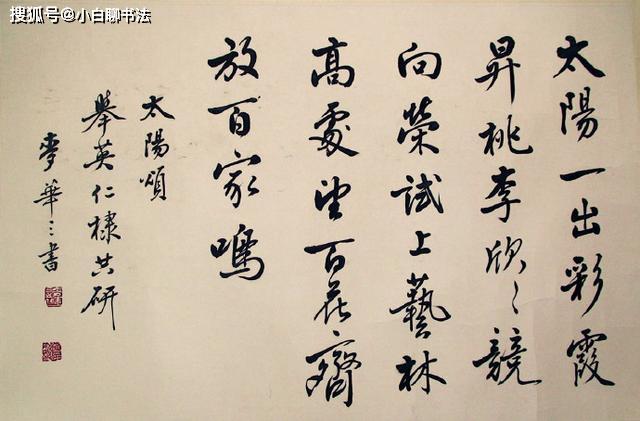 搜狐号@小白聊书法
太陽一出彩霞
昇桃李欣々競
向榮試上藝林
高處望百花齊
放百家鳴
太陽頌
舉英仁棣共研
麥華三書